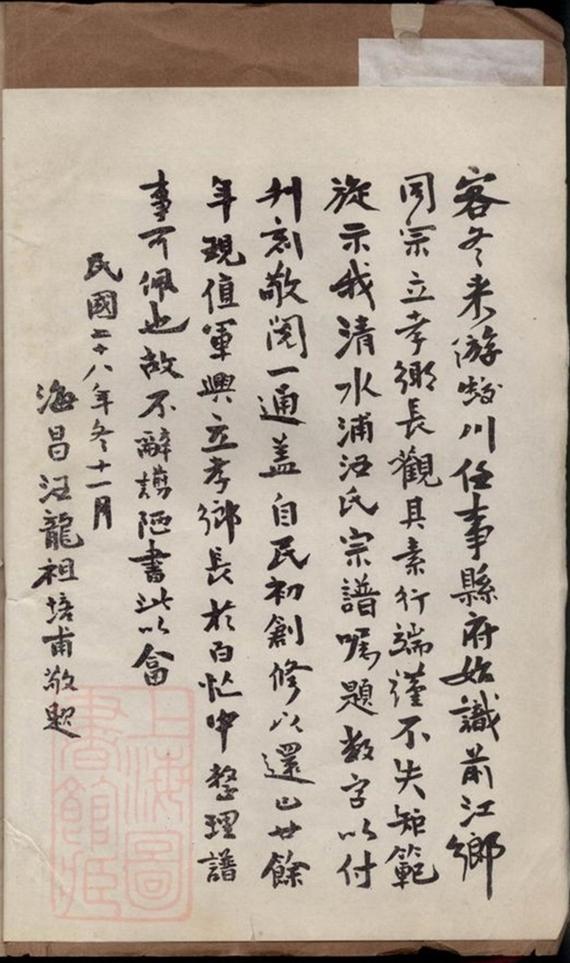 客冬来游蛟川任事縣府始識前江鄉
同宗立孝鄉長觀其素行端謹不失矩範
旋示我清水浦汪氏宗譜囑題数字以付
刋刻敬閱一通盖自民初創修以還已廿餘
年現值軍興立孝鄉長於百忙中整理譜
事可佩也故不辭譾陋書此以畣
民國二十八年冬十一月
海昌汪龍祖培甫敬題
上海圖
書館